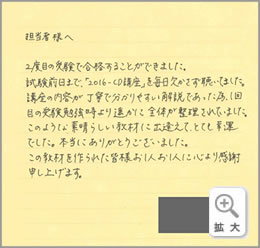 担当者様へ
2度目の受験で合格することができました。
試験前日まで、「2016-CD講座」を毎日欠かさず聴いてました。
講座の内容が丁寧で分かりやすい解説であった為、1回
目の受験勉強時より遙かに全体が整理されていました。
このような素晴らしい教材に出逢えて、とても幸運
でした。本当にありがとうございました。
この教材を作られた皆様お1人お1人に心より感謝
申し上げます。
拡大